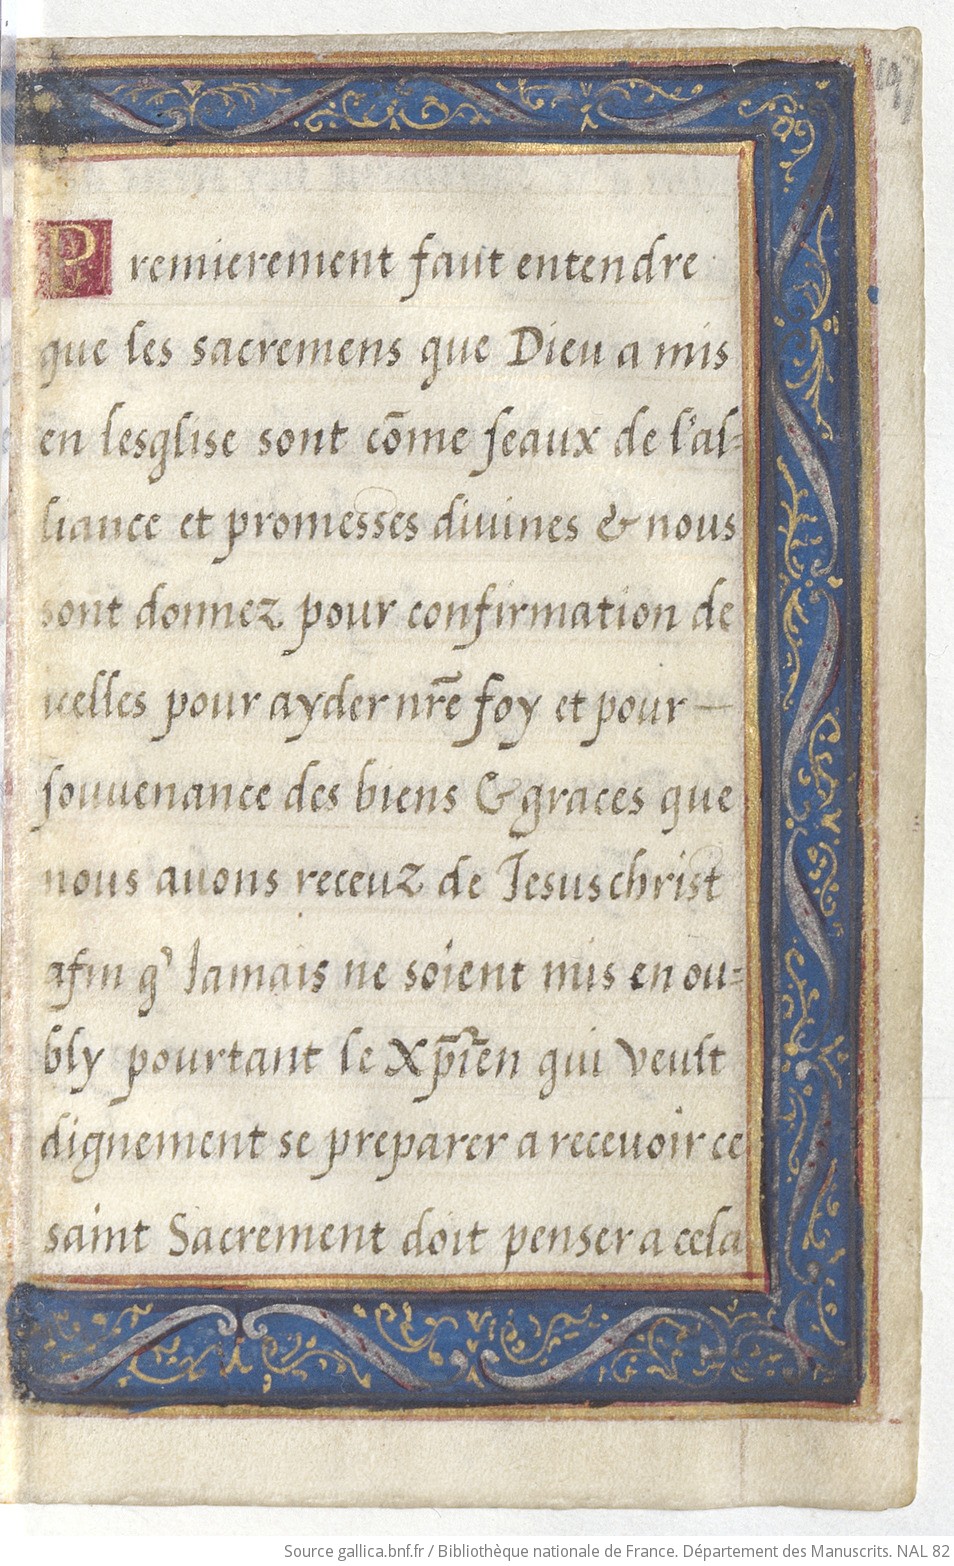 Premierement faut entendre
que les sacremens que Dieu a mis
en lesglise sont cōme seaux de l'al=
liance et promesses diuines & nous
sont donnez pour confirmation de
icelles pour ayder nr̄e foy et pour —
souuenance des biens & graces que
nous auons receuz de Jesuschrist
afin q' Jamais ne soient mis en ou=
bly pourtant le Xp̄ien qui Veult
dignement se preparer a receuoir ce
saint Sacrement doit penser a cela
Source gallica.bnf.fr / Bibliothèque nationale de France. Département des Manuscrits. NAL 82